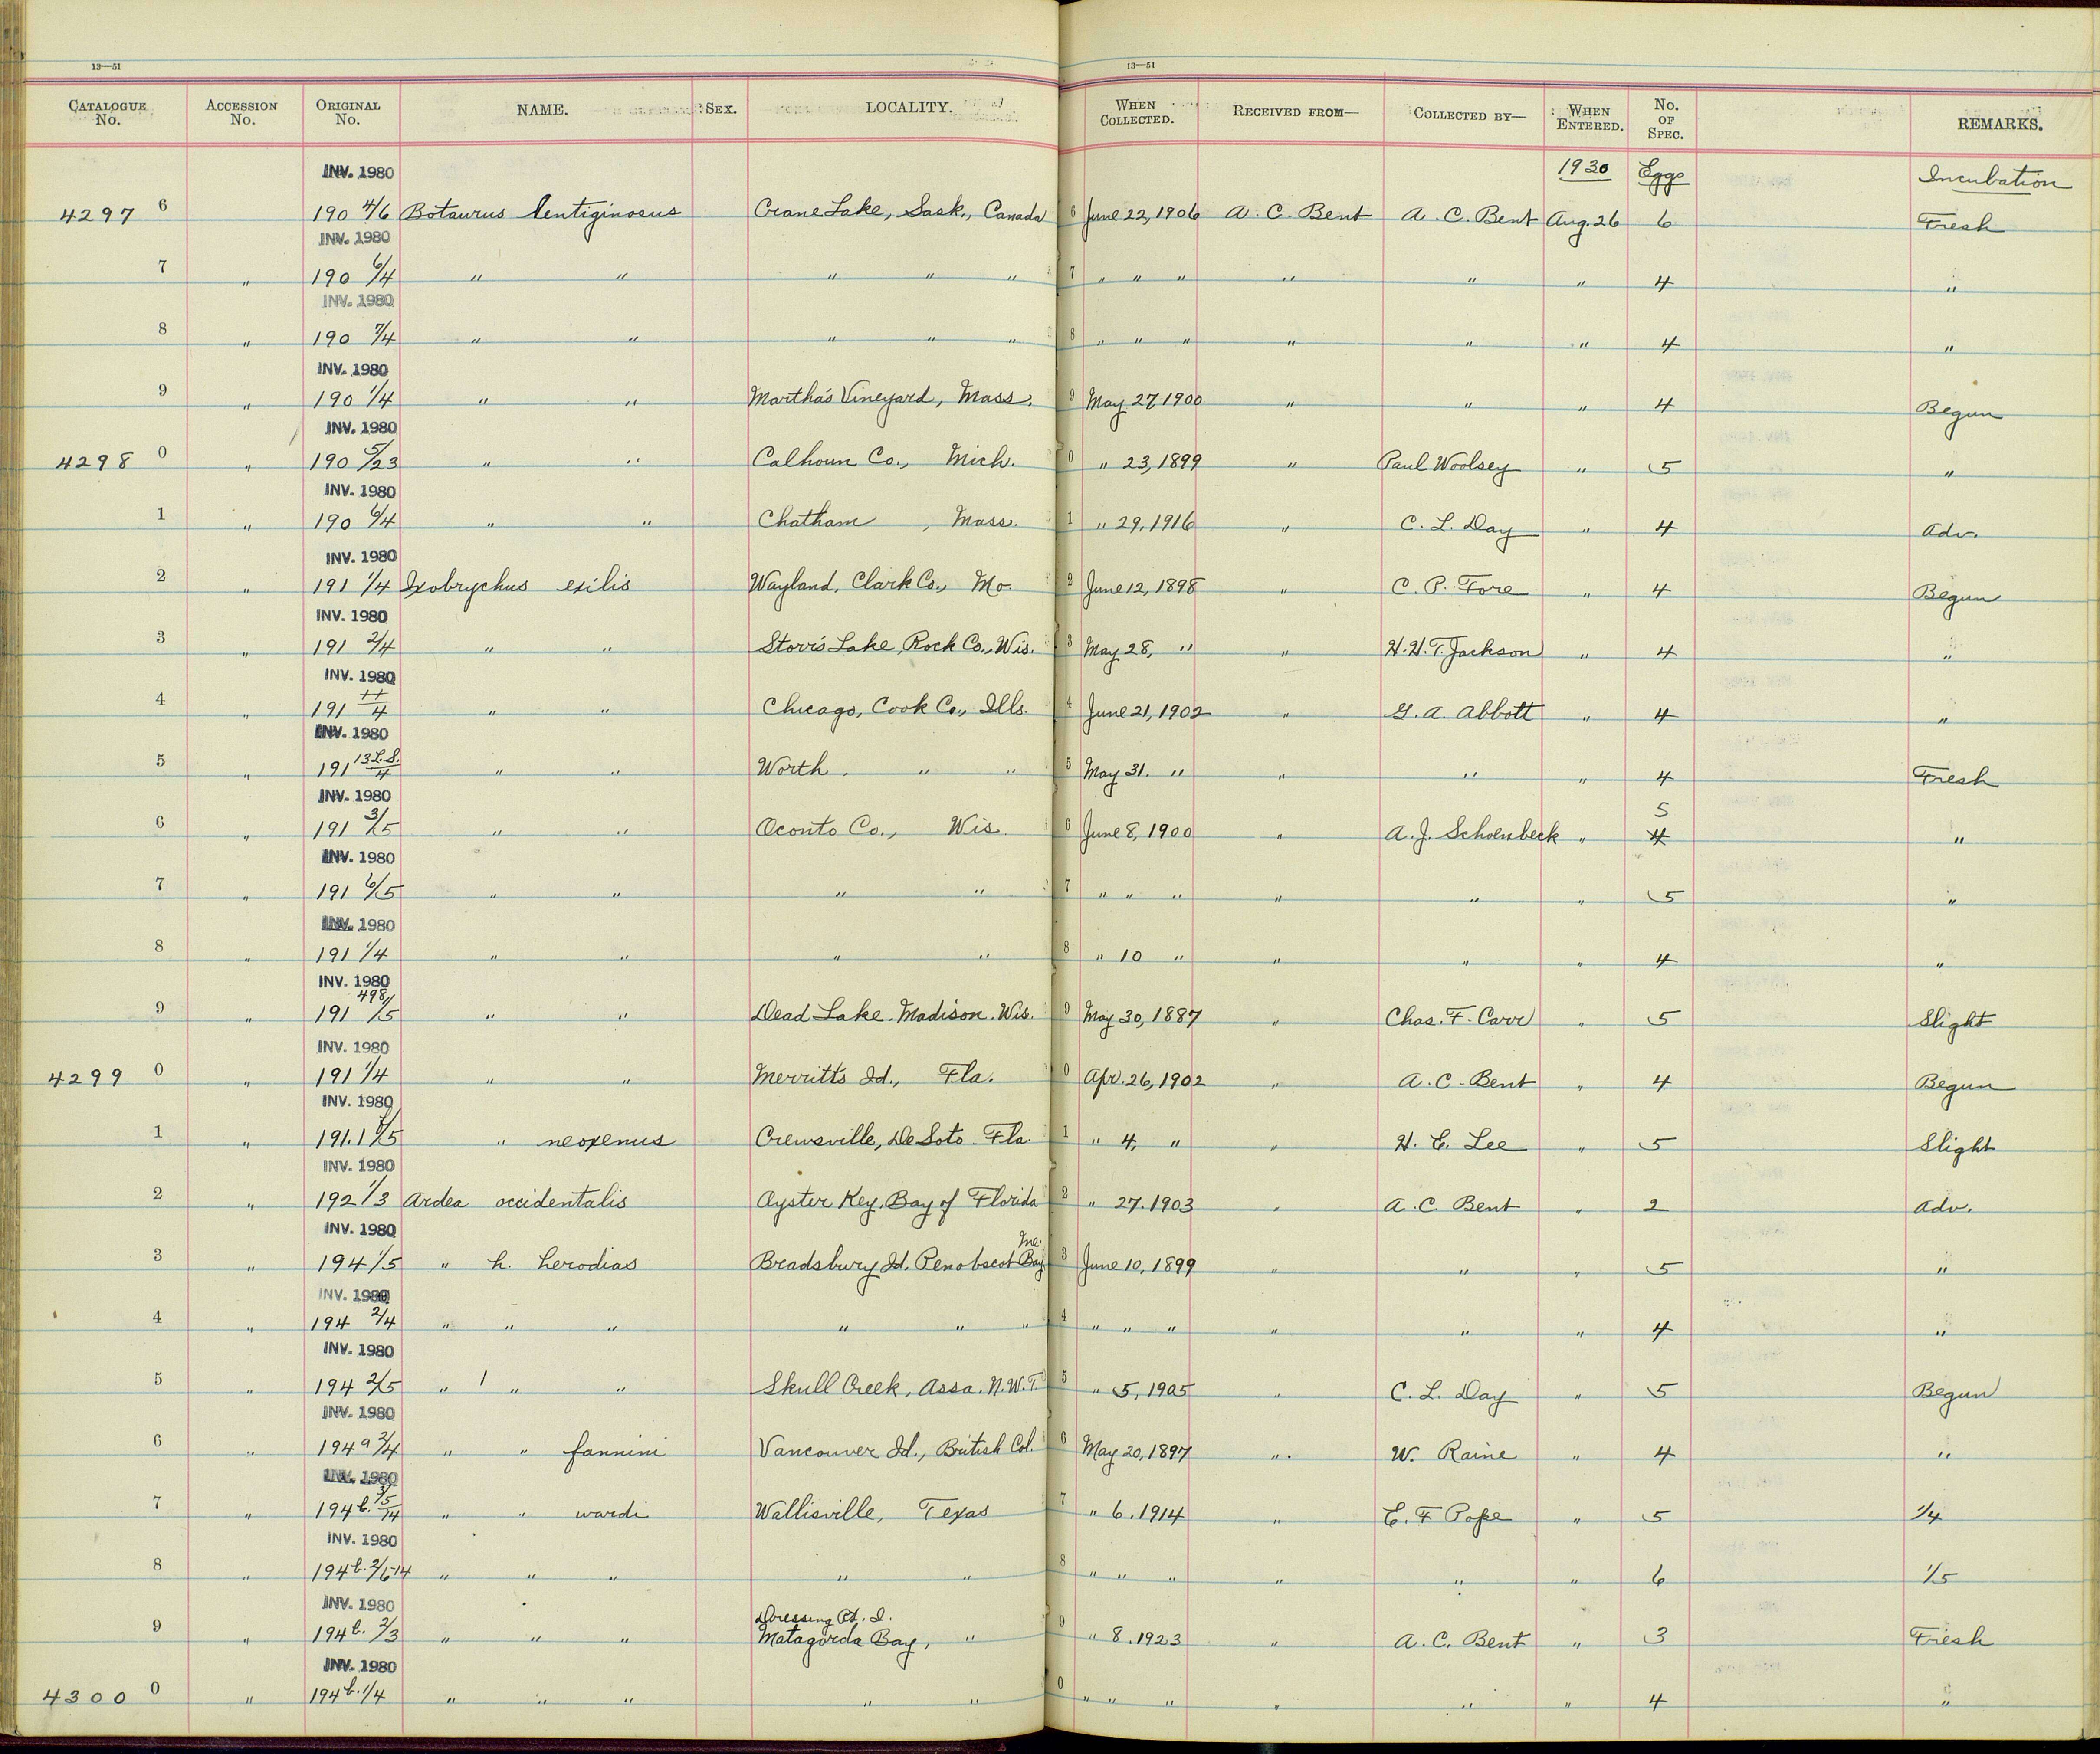 13—51 13—51
CATALOGUE No. ACCESSION No. ORIGINAL No. NAME. SEX. LOCALITY. WHEN COLLECTED. RECEIVED FROM— COLLECTED BY— WHEN ENTERED. No. OF SPEC. REMARKS.
INV. 1980 1930 Eggs Incubation
4297 6 190 4/6 Botaurus lentiginosus Crane Lake, Sask., Canada 6 June 22, 1906 A. C. Bent A. C. Bent Aug. 26 6 Fresh
INV. 1980
7 " 190 6/4 " " " " " 7 " " " " " " 4 "
INV. 1980
8 " 190 7/4 " " " " " 8 " " " " " " 4 "
INV. 1980
9 " 190 1/4 " " Martha's Vineyard, Mass. 9 May 27, 1900 " " " 4 Begun
INV. 1980
4298 0 " 190 5/23 " " Calhoun Co., Mich. 0 " 23, 1899 " Paul Woolsey " 5 "
INV. 1980
1 " 190 6/4 " " Chatham, Mass. 1 " 29, 1916 " C. L. Day " 4 Adv.
INV. 1980
2 " 191 1/4 Ixobrychus exilis Wayland, Clark Co., Mo. 2 June 12, 1898 " C. P. Fore " 4 Begun
INV. 1980
3 " 191 2/4 " " Storrs Lake, Rock Co., Wis. 3 May 28, " " H. H. T. Jackson " 4 "
INV. 1980
4 " 191 11/4 " " Chicago, Cook Co., Ills. 4 June 21, 1902 " G. A. Abbott " 4 "
INV. 1980
5 " 191 13 L.S./4 " " Worth. " " 5 May 31. " " " " 4 Fresh
INV. 1980 5
6 " 191 3/5 " " Oconto Co., Wis. 6 June 8, 1900 " A. J. Schoenbeck " 4 "
INV. 1980
7 " 191 6/5 " " " " 7 " " " " " " 5 "
INV. 1980
8 " 191 1/4 " " " " 8 " 10 " " " " 4 "
INV. 1980
9 " 191 498/5 " " Dead Lake. Madison. Wis. 9 May 30, 1887 " Chas. F. Carr " 5 Slight
INV. 1980
4299 0 " 191 1/4 " " Merritts Id., Fla. 0 Apr. 26, 1902 " A. C. Bent " 4 Begun
INV. 1980
1 " 191.1 /5 " neoxenus Crewsville, De Soto Fla. 1 " 4, " " H. E. Lee " 5 Slight
INV. 1980
2 " 192 1/3 Ardea occidentalis Oyster Key, Bay of Florida 2 " 27. 1903 " A. C Bent " 2 Adv.
INV. 1980 Me.
3 " 194 1/5 " h. herodias Bradsbury Id. Penobscot Bay 3 June 10, 1899 " " " 5 "
INV. 1980
4 " 194 2/4 " " " " " " 4 " " " " " " 4 "
INV. 1980
5 " 194 2/5 " 1 " " Skull Creek, Assa. N.W.T. 5 " 5, 1905 " C. L. Day " 5 Begun
INV. 1980
6 " 194a 2/4 " " fannini Vancouver Id., British Col. 6 May 20, 1897 " W. Raine " 4 "
INV. 1980
7 " 194 b. /5 14 " " wardi Wallisville, Texas 7 " 6. 1914 " E. F Pope " 5 1/4
INV. 1980
8 " 194 b. 2/6-14 " " " " " 8 " " " " " " 6 1/5
INV. 1980 Dressing Pt. I.
9 " 194 b. 2/3 " " " Matagorda Bay, " 9 " 8. 1923 " A. C. Bent " 3 Fresh
INV. 1980
4300 0 " 194 b. 1/4 " " " " " 0 " " " " " " 4 "